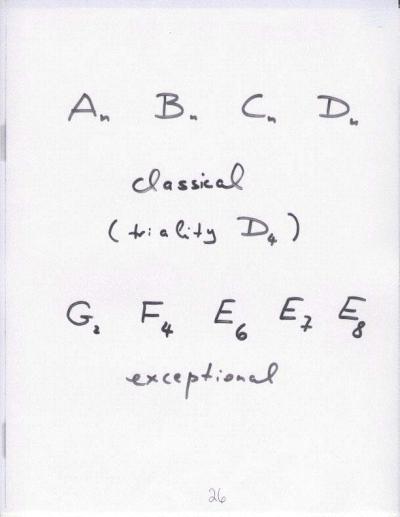 Aₙ Bₙ Cₙ Dₙ
classical
(triality D₄)
G₂ F₄ E₆ E₇ E₈
exceptional
26